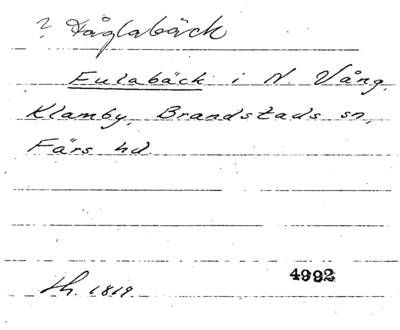 ? Fåglabäck
Eulabäck i N. Vång,
Klamby, Brandstads sn,
Färs hd.
4992
th. 1819.